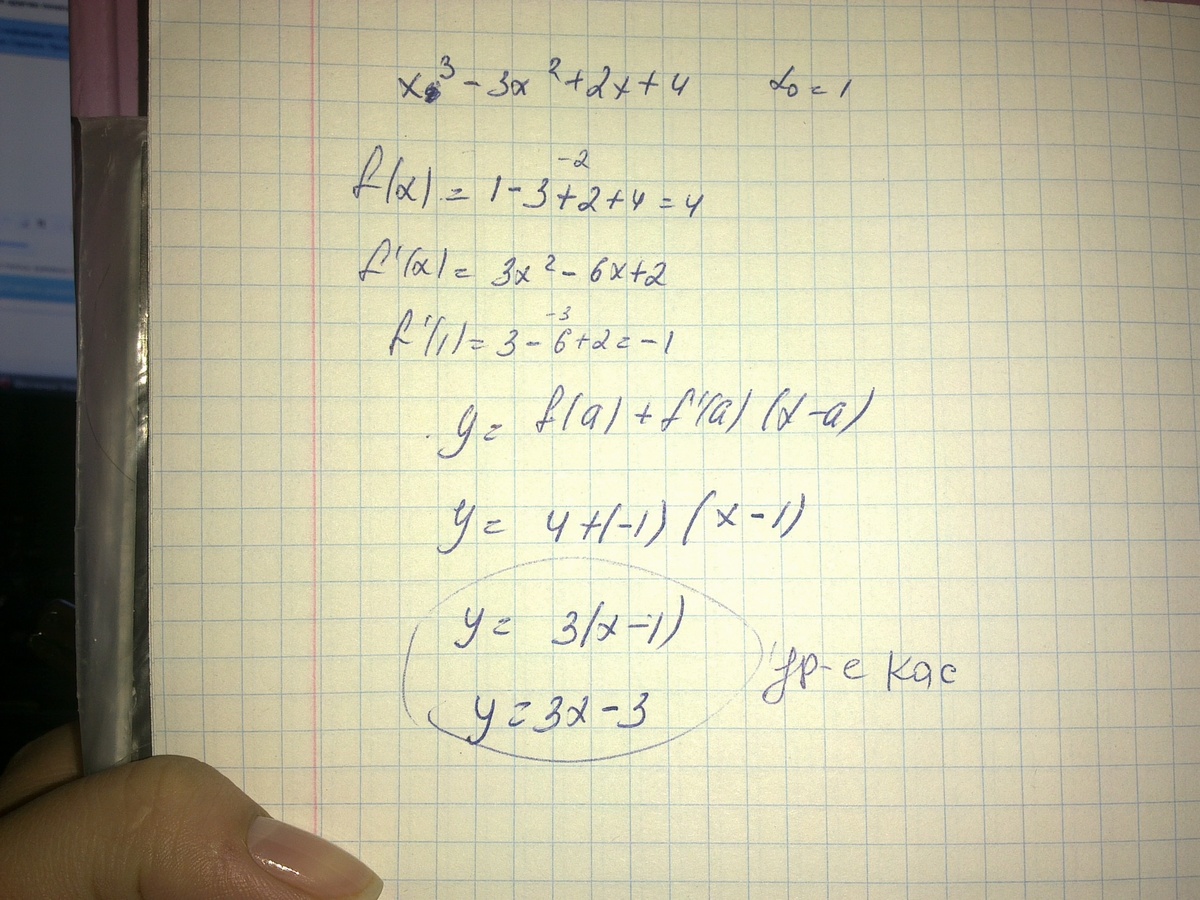 x³ - 3x² + 2x + 4 x₀ = 1
-2
f(x) = 1 - 3 + 2 + 4 = 4
f'(x) = 3x² - 6x + 2
-3
f'(1) = 3 - 6 + 2 = -1
y = f(a) + f'(a) (x - a)
y = 4 + (-1) (x - 1)
y = 3(x - 1)
ур-е кас
y = 3x - 3